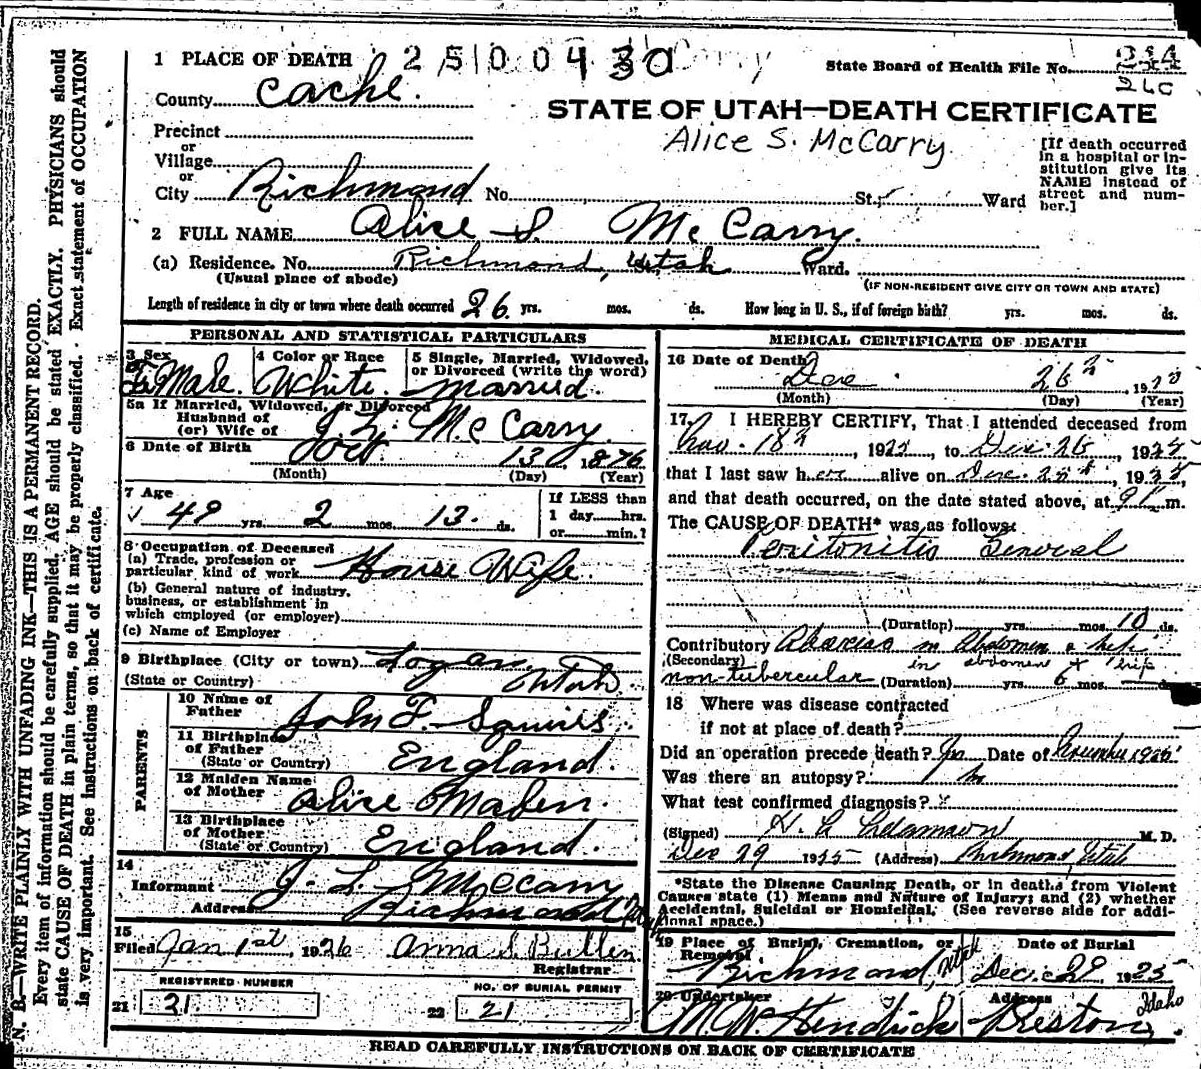 1 PLACE OF DEATH 2510043
State Board of Health File No. 244
260
County Cache.
STATE OF UTAH—DEATH CERTIFICATE
Alice S. McCarry
Precinct
or
Village
or
City Richmond No. St.; Ward
[If death occurred
in a hospital or in-
stitution give its
NAME instead of
street and num-
ber.]
2 FULL NAME Alice S. McCarry.
(a) Residence. No. Richmond, Utah Ward.
(Usual place of abode)
(IF NON-RESIDENT GIVE CITY OR TOWN AND STATE)
Length of residence in city or town where death occurred 26 yrs. mos. ds. How long in U. S., if of foreign birth? yrs. mos. ds.
PERSONAL AND STATISTICAL PARTICULARS
3 Sex
FeMale.
4 Color or Race
White.
5 Single, Married, Widowed,
or Divorced (write the word)
Married.
5a If Married, Widowed, or Divorced
Husband of
(or) Wife of J. L. McCarry.
6 Date of Birth Oct 13, 1876
(Month) (Day) (Year)
7 Age
49 yrs. 2 mos. 13. ds.
If LESS than
1 day......hrs.
or......min.?
8 Occupation of Deceased
(a) Trade, profession or
particular kind of work House Wife.
(b) General nature of industry,
business, or establishment in
which employed (or employer)
(c) Name of Employer
9 Birthplace (City or town) Logan,
(State or Country) Utah
PARENTS
10 Name of
Father John F. Squires
11 Birthplace
of Father
(State or Country) England.
12 Maiden Name
of Mother Alice Maben.
13 Birthplace
of Mother
(State or Country) England.
14
Informant J. L. McCarry
Address Richmond
15
Filed Jan 1st, 1926 Anna S. Bullen
Registrar
REGISTERED NUMBER
21 21
NO. OF BURIAL PERMIT
22 21
MEDICAL CERTIFICATE OF DEATH
16 Date of Death
Dec. 26
(Month) (Day) (Year)
17 I HEREBY CERTIFY, That I attended deceased from
Nov. 18, 1925, to Dec. 26, 1925
that I last saw her alive on Dec. 25, 1925,
and that death occurred, on the date stated above, at 9 m.
The CAUSE OF DEATH* was as follows:
Peritonitis General
(Duration) yrs. mos. 10 ds.
Contributory Abscess in Abdomen & hip
(Secondary) in abdomen + hip
non-tubercular (Duration) yrs. 6 mos. ds.
18 Where was disease contracted
if not at place of death?
Did an operation precede death? Date of November 1925
Was there an autopsy?
What test confirmed diagnosis?
(Signed) Adamson M. D.
Dec 29 1925 (Address) Richmond Utah
*State the Disease Causing Death, or in deaths from Violent
Causes state (1) Means and Nature of Injury; and (2) whether
Accidental, Suicidal or Homicidal. (See reverse side for addi-
tional space.)
19 Place of Burial, Cremation, or
Removal
Richmond, Utah
Date of Burial
Dec. 29 1925
20 Undertaker
M. W. Hendricks
Address
Preston, Idaho
READ CAREFULLY INSTRUCTIONS ON BACK OF CERTIFICATE
N. B.—WRITE PLAINLY WITH UNFADING INK—THIS IS A PERMANENT RECORD.
Every item of information should be carefully supplied. AGE should be stated EXACTLY. PHYSICIANS should
state CAUSE OF DEATH in plain terms, so that it may be properly classified. Exact statement of OCCUPATION
is very important. See instructions on back of certificate.